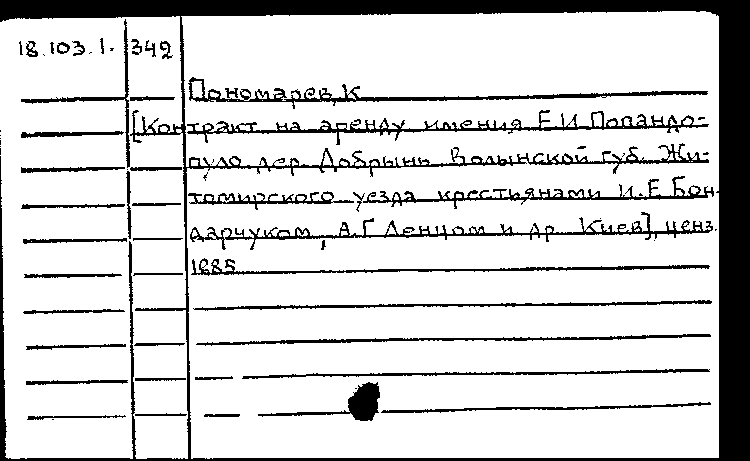 18.103.1. 342
Пономарев, К
[Контракт на аренду имения Е.И. Попандо-
пуло дер. Добрынь Волынской губ. Жи-
томирского уезда крестьянами И.Е. Бон-
дарчуком, А.Г. Ленцом и др. Киев], ценз.
1885